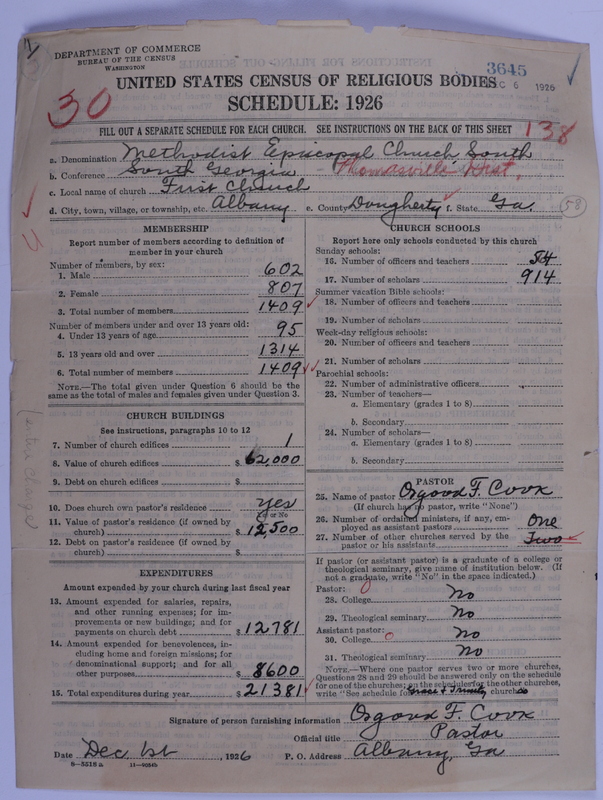 DEPARTMENT OF COMMERCE
BUREAU OF THE CENSUS
WASHINGTON
3645
6 1926
UNITED STATES CENSUS OF RELIGIOUS BODIES
SCHEDULE: 1926
30
FILL OUT A SEPARATE SCHEDULE FOR EACH CHURCH. SEE INSTRUCTIONS ON THE BACK OF THIS SHEET
138
a. Denomination Methodist Episcopal Church, South
b. Conference South Georgia - Thomasville Dist.
c. Local name of church First Church
d. City, town, village, or township, etc. Albany e. County Dougherty f. State Ga. 58
MEMBERSHIP
Report number of members according to definition of
member in your church
Number of members, by sex:
1. Male 602
2. Female 807
3. Total number of members 1409
Number of members under and over 13 years old:
4. Under 13 years of age 95
5. 13 years old and over 1314
6. Total number of members 1409
NOTE.—The total given under Question 6 should be the
same as the total of males and females given under Question 3.
CHURCH BUILDINGS
See instructions, paragraphs 10 to 12
7. Number of church edifices 1
8. Value of church edifices $ 62,000
9. Debt on church edifices $
10. Does church own pastor's residence yes
Yes or No
11. Value of pastor's residence (if owned by
church) $ 12,500
12. Debt on pastor's residence (if owned by
church) $
EXPENDITURES
Amount expended by your church during last fiscal year
13. Amount expended for salaries, repairs,
and other running expenses; for im-
provements or new buildings; and for
payments on church debt $ 12781
14. Amount expended for benevolences, in-
cluding home and foreign missions; for
denominational support; and for all
other purposes $ 8600
15. Total expenditures during year $ 21381
CHURCH SCHOOLS
Report here only schools conducted by this church
Sunday schools:
16. Number of officers and teachers 54
17. Number of scholars 914
Summer vacation Bible schools:
18. Number of officers and teachers
19. Number of scholars
Week-day religious schools:
20. Number of officers and teachers
21. Number of scholars
Parochial schools:
22. Number of administrative officers
23. Number of teachers—
a. Elementary (grades 1 to 8)
b. Secondary
24. Number of scholars—
a. Elementary (grades 1 to 8)
b. Secondary
PASTOR
25. Name of pastor Osgood F. Cook
(If church has no pastor, write "None")
26. Number of ordained ministers, if any, em-
ployed as assistant pastors One
27. Number of other churches served by the
pastor or his assistants Two
If pastor (or assistant pastor) is a graduate of a college or
theological seminary, give name of institution below. (If
not a graduate, write "No" in the space indicated.)
Pastor: 0
28. College No
29. Theological seminary No
Assistant pastor: 0
30. College No
31. Theological seminary No
NOTE.—Where one pastor serves two or more churches,
Questions 28 and 29 should be answered only on the schedule
for one of the churches; on the schedules for the other churches,
write "See schedule for Grace & Trinity church
Signature of person furnishing information Osgood F. Cook
Official title Pastor
Date Dec 1st, 1926 P. O. Address Albany, Ga
8—5518 a